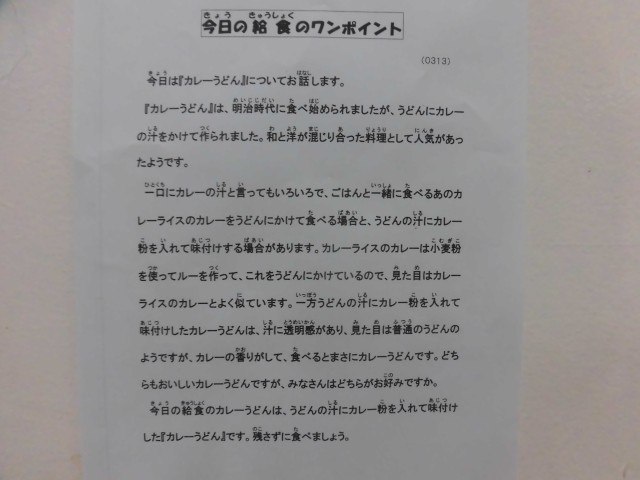 今日の給食のワンポイント
（0313）
今日は『カレーうどん』についてお話します。
『カレーうどん』は、明治時代に食べ始められましたが、うどんにカレー
の汁をかけて作られました。和と洋が混じり合った料理として人気があっ
たようです。
一口にカレーの汁と言ってもいろいろで、ごはんと一緒に食べるあのカ
レーライスのカレーをうどんにかけて食べる場合と、うどんの汁にカレー
粉を入れて味付けする場合があります。カレーライスのカレーは小麦粉
を使ってルーを作って、これをうどんにかけているので、見た目はカレー
ライスのカレーとよく似ています。一方うどんの汁にカレー粉を入れて
味付けしたカレーうどんは、汁に透明感があり、見た目は普通のうどんの
ようですが、カレーの香りがして、食べるとまさにカレーうどんです。どち
らもおいしいカレーうどんですが、みなさんはどちらがお好みですか。
今日の給食のカレーうどんは、うどんの汁にカレー粉を入れて味付け
した『カレーうどん』です。残さずに食べましょう。